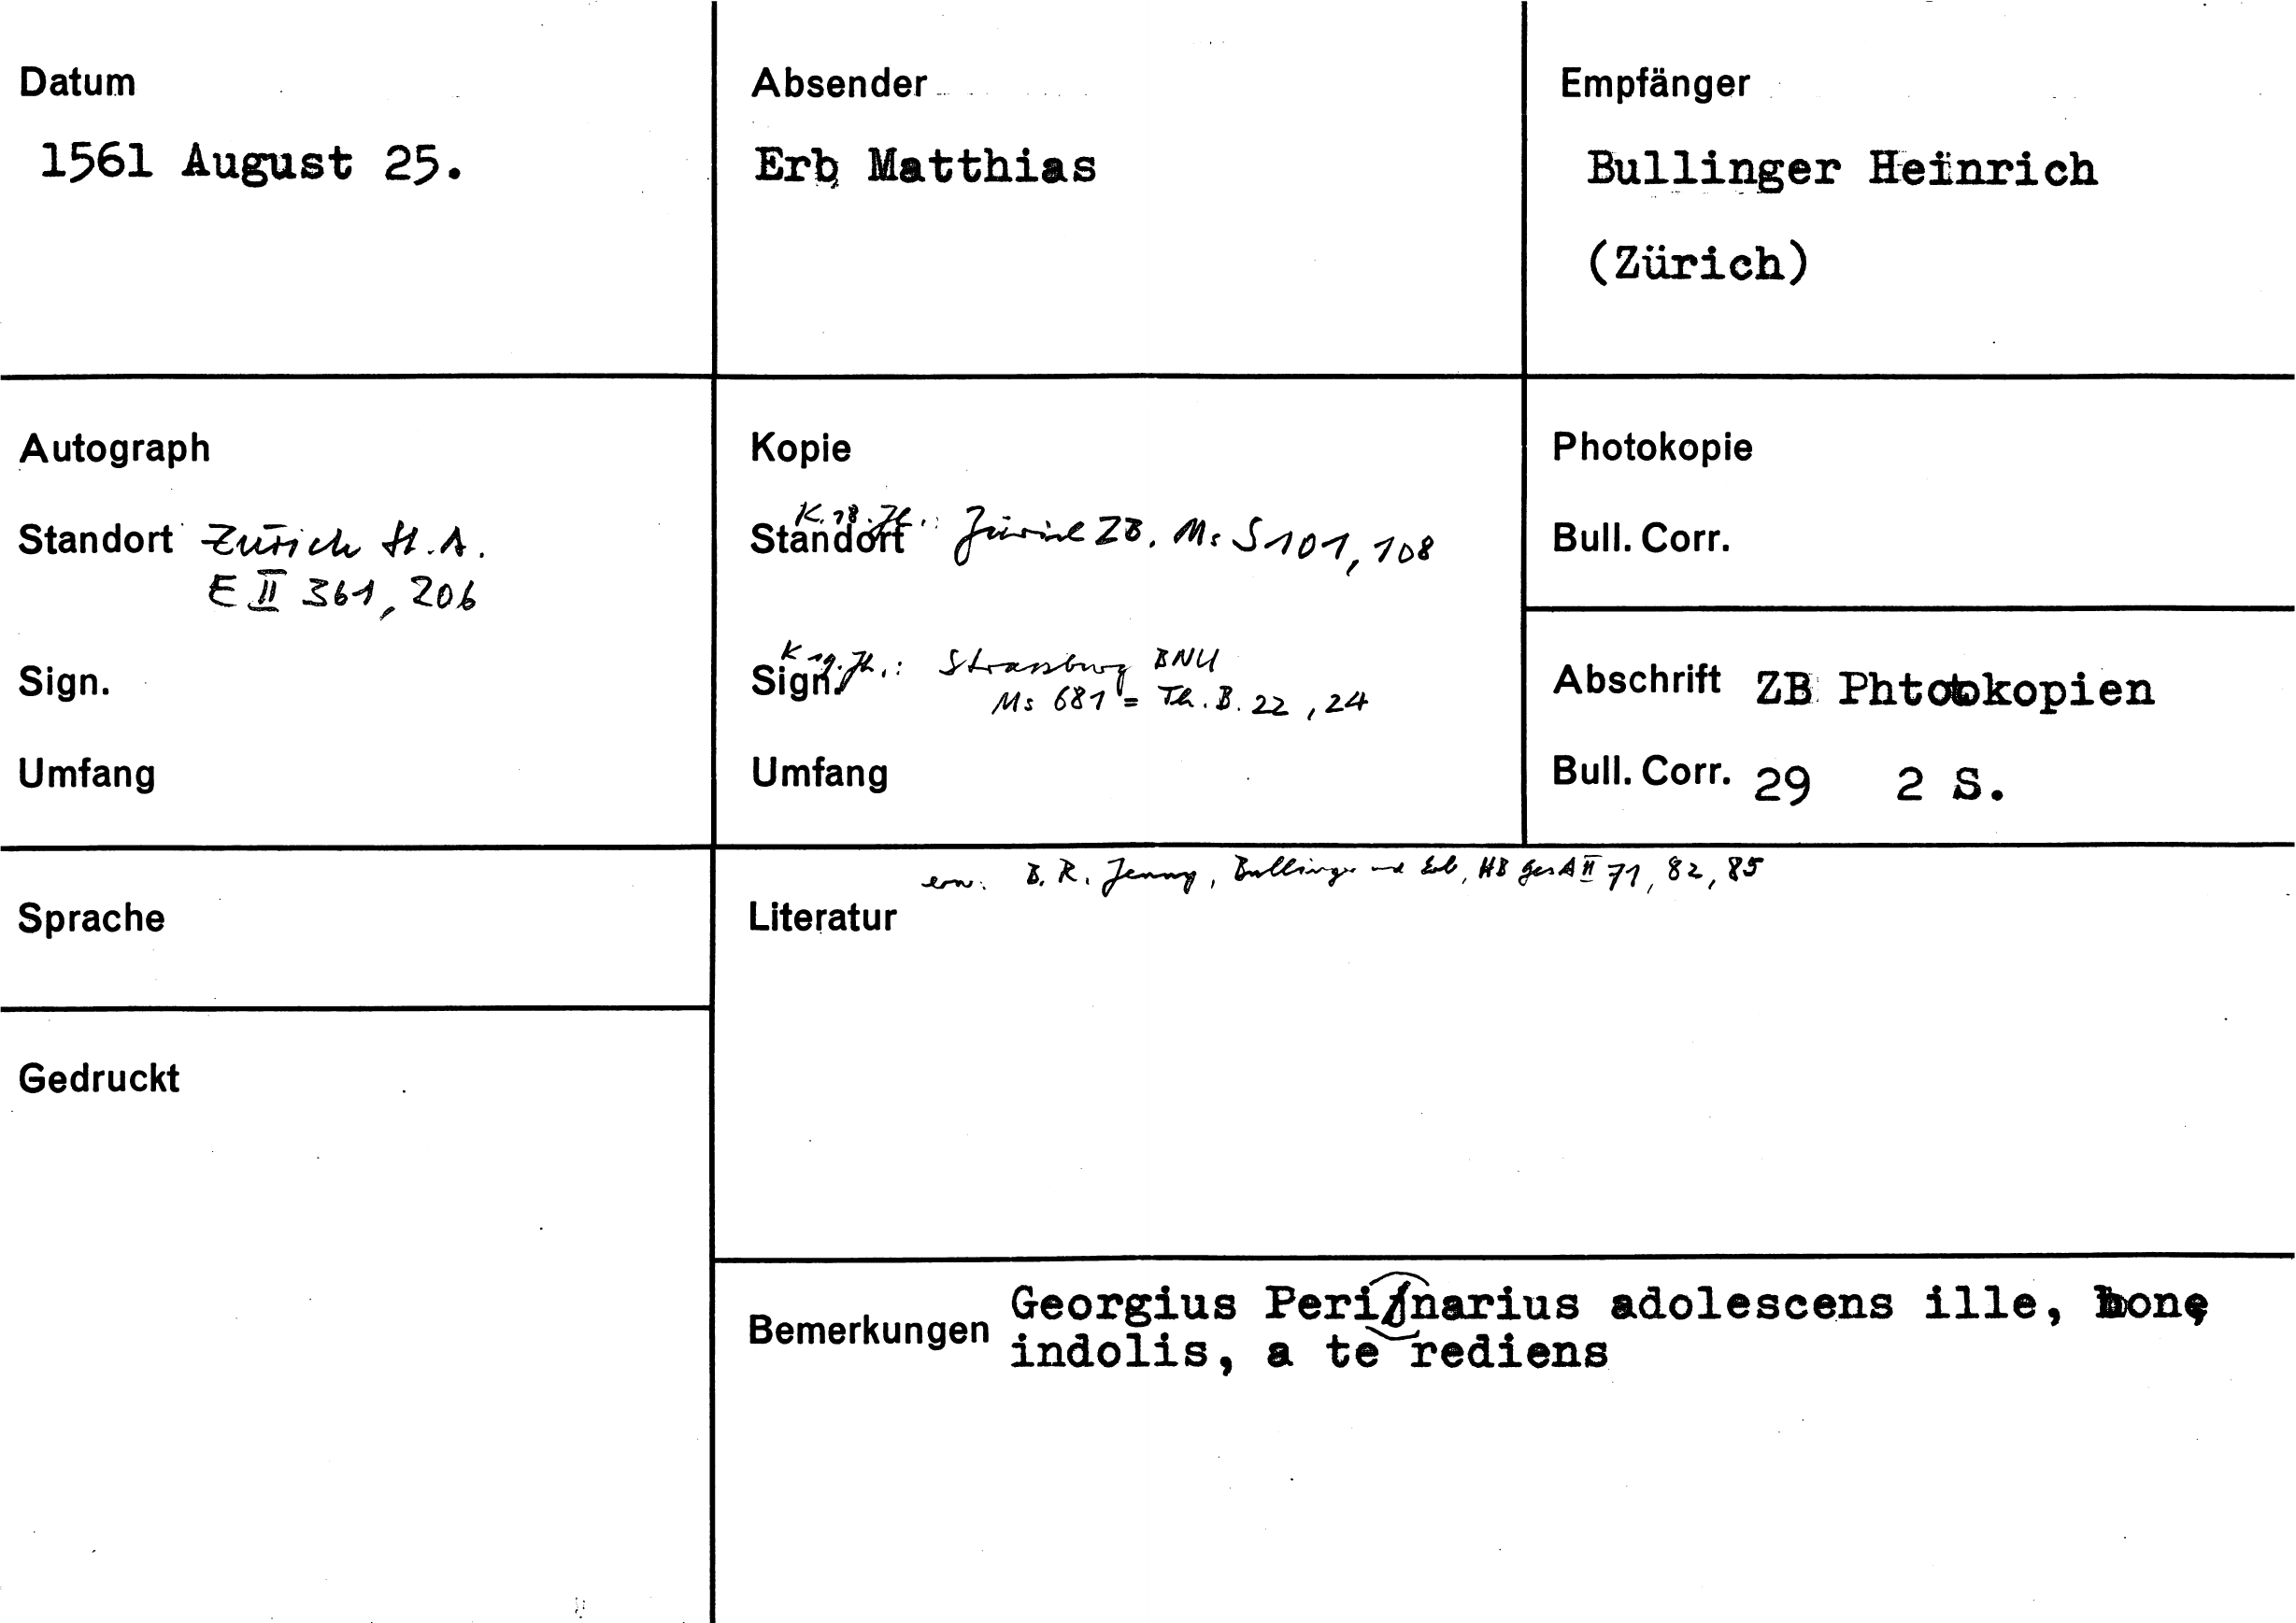 Datum
1561 August 25.
Absender
Erb Matthias
Empfänger
Bullinger Heinrich
(Zürich)
Autograph
Standort Zürich St.A.
E II 361, 206
Sign.
Umfang
Kopie
K. 18. Jh.: Zürich ZB. Ms S 101, 108
Standort
K 19. Jh.: Strassburg BNU
Sign. Ms 681 = Th. B. 22, 24
Umfang
Photokopie
Bull. Corr.
Abschrift ZB Phtotokopien
Bull. Corr. 29 2 S.
Sprache
Gedruckt
erw: B. R. Jenny, Bullinger und Erb, HB Ges A II 71, 82, 85
Literatur
Georgius Perinarius adolescens ille, bonę
Bemerkungen indolis, a te rediens